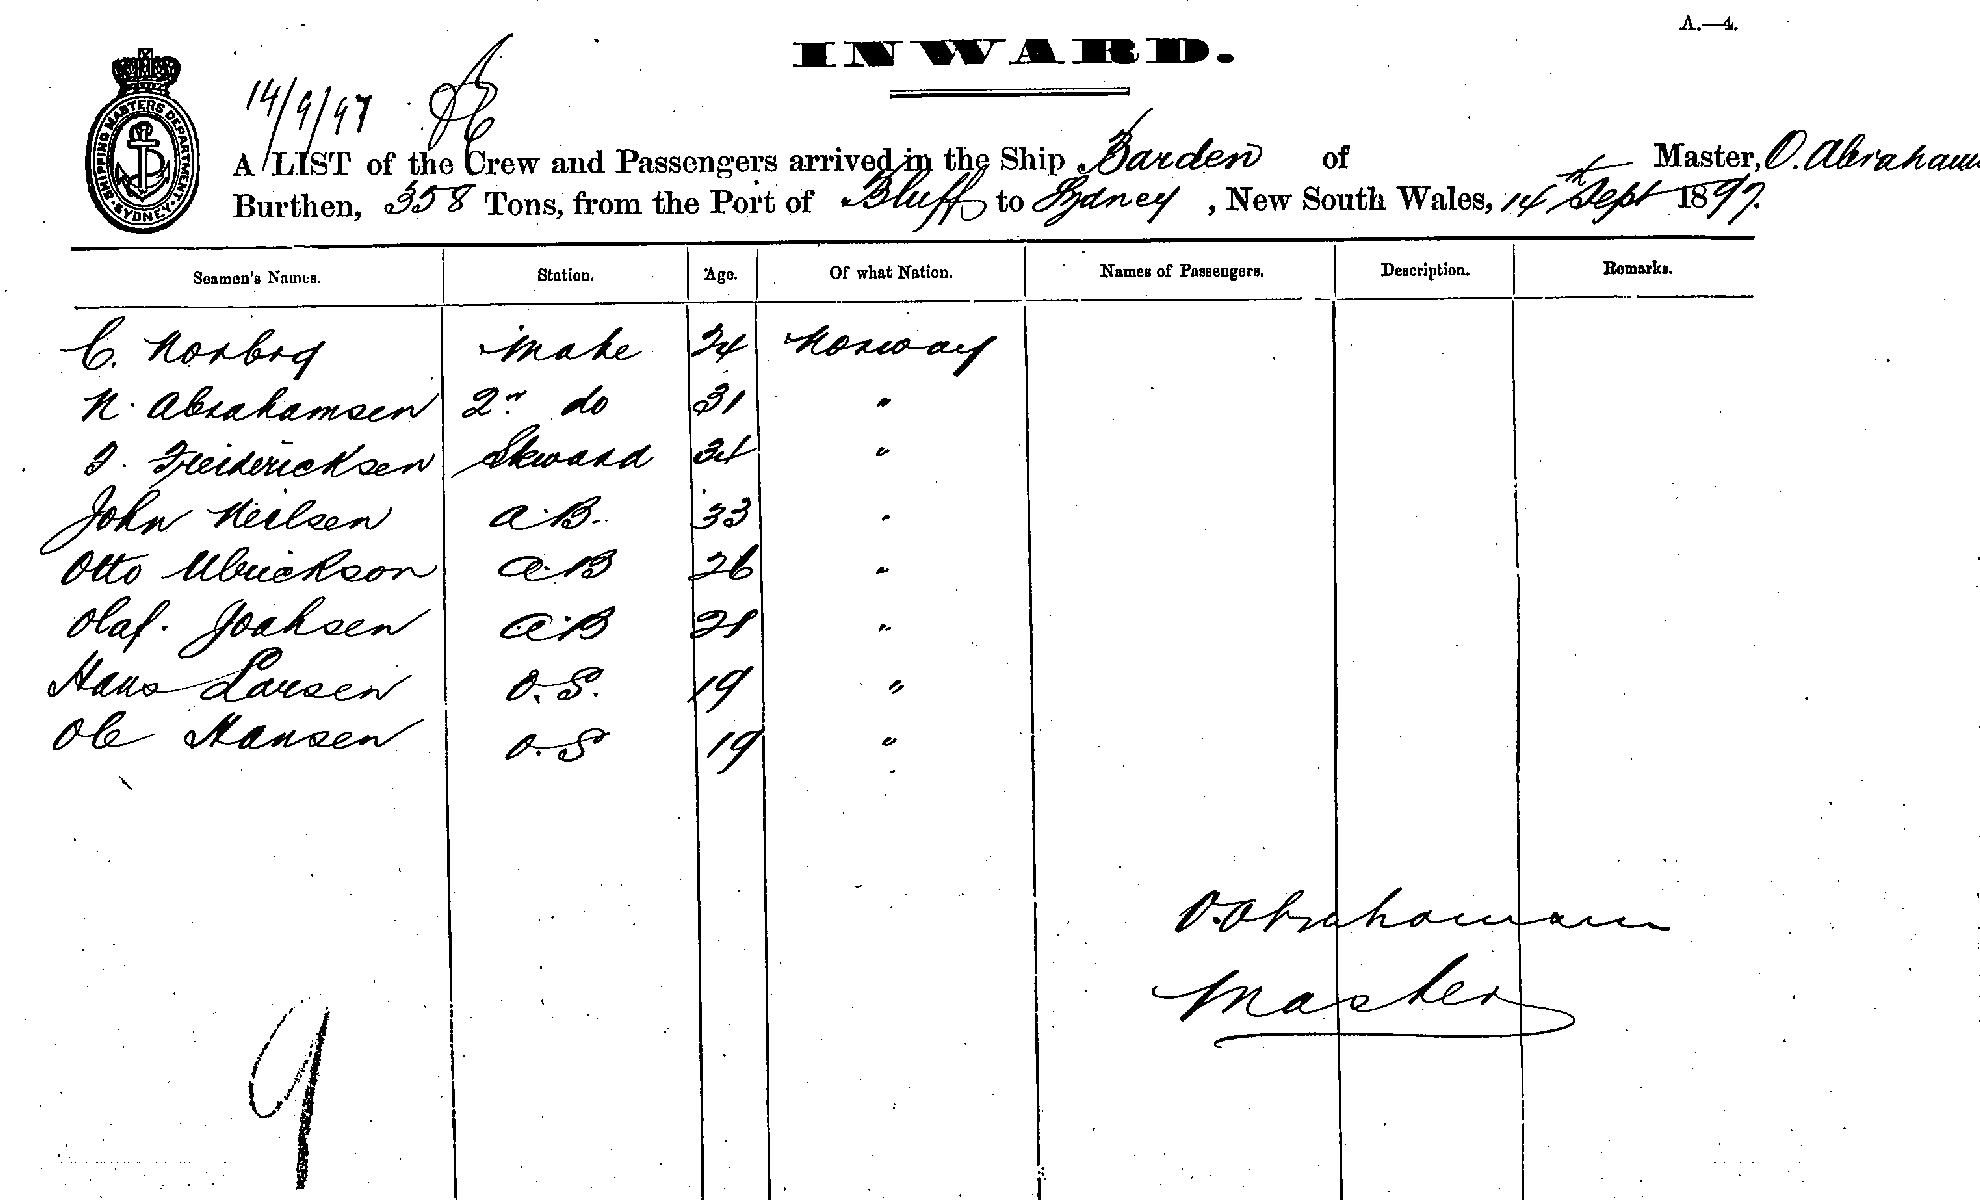 A.—4.
INWARD.
14/9/97
SHIPPING MASTERS DEPARTMENT SYDNEY
A LIST of the Crew and Passengers arrived in the Ship Barden of Master, O. Abraham
Burthen, 358 Tons, from the Port of Bluff to Sydney, New South Wales, 14th Sept 1897.
Seamen's Names. Station. Age. Of what Nation. Names of Passengers. Description. Remarks.
C. Norbrg Mate 34 Norway
N. Abrahamsen 2nd do 31 "
Freidericksen Steward 34 "
John Neilsen A.B. 33 "
Otto Ulrickson A.B 26 "
Olaf. A.B 21 "
Hans Larsen O.S. 19 "
Ole Hansen O.S 19 "
Master
9